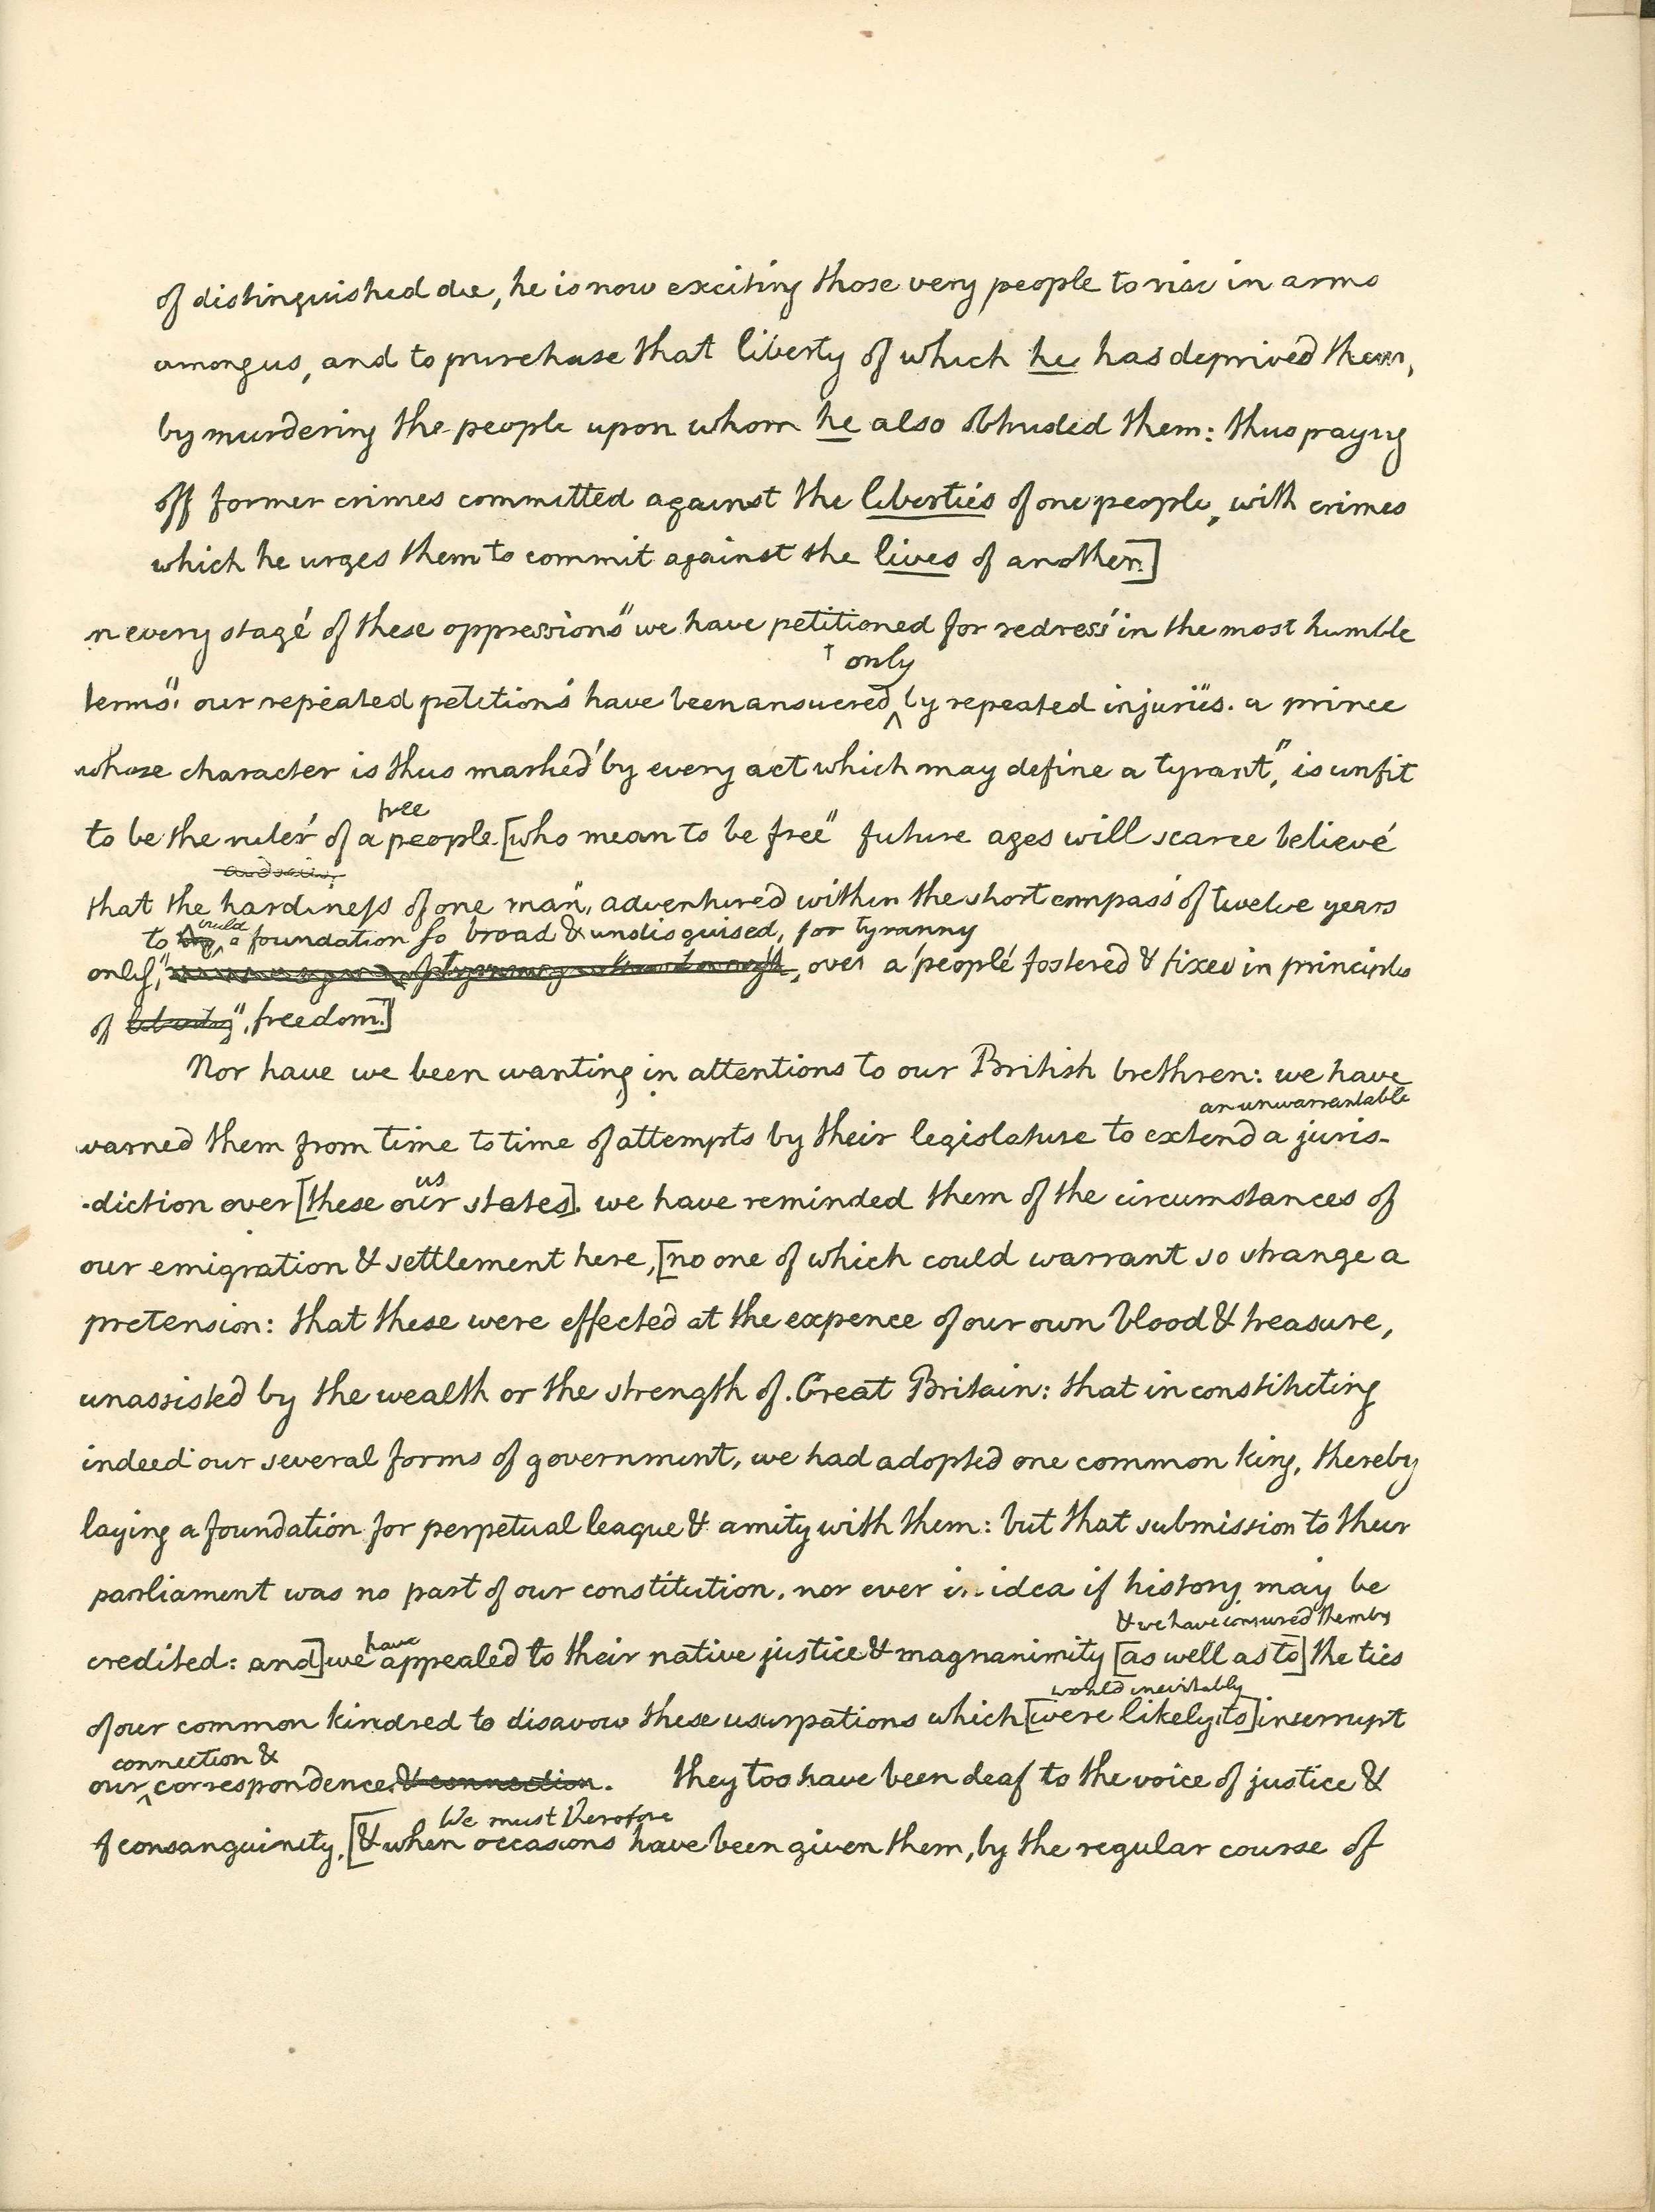 of distinguished die, he is now exciting those very people to rise in arms
among us, and to purchase that liberty of which he has deprived them,
by murdering the people upon whom he also obtruded them: thus payng
off former crimes committed against the liberties of one people, with crimes
which he urges them to commit against the lives of another.]
n every stage of these oppressions" we have petitioned for redress in the most humble
only
terms" our repeated petitions have been answered by repeated injuries. a prince
whose character is thus marked by every act which may define a tyrant," is unfit
free
to be the ruler of a people [who mean to be free" future ages will scarce believe
that the hardiness of one man, adventured within the short compass of twelve years
to build a foundation so broad & undisguised, for tyranny
only, over a people fostered & fixed in principles
of freedom.]
Nor have we been wanting in attentions to our British brethren: we have
an unwarrantable
warned them from time to time of attempts by their legislature to extend a juris-
us
-diction over [these our states]. we have reminded them of the circumstances of
our emigration & settlement here, [no one of which could warrant so strange a
pretension: that these were effected at the expence of our own blood & treasure,
unassisted by the wealth or the strength of Great Britain: that in constituting
indeed our several forms of government, we had adopted one common king, thereby
laying a foundation for perpetual league & amity with them: but that submission to their
parliament was no part of our constitution, nor ever in idea if history may be
& we have conjured them by
have
credited: and] we appealed to their native justice & magnanimity [as well as to] the ties
would inevitably
of our common kindred to disavow these usurpations which [were likely to] interrupt
connection &
our correspondence & connection. they too have been deaf to the voice of justice &
We must therefore
of consanguinity, [& when occasions have been given them, by the regular course of